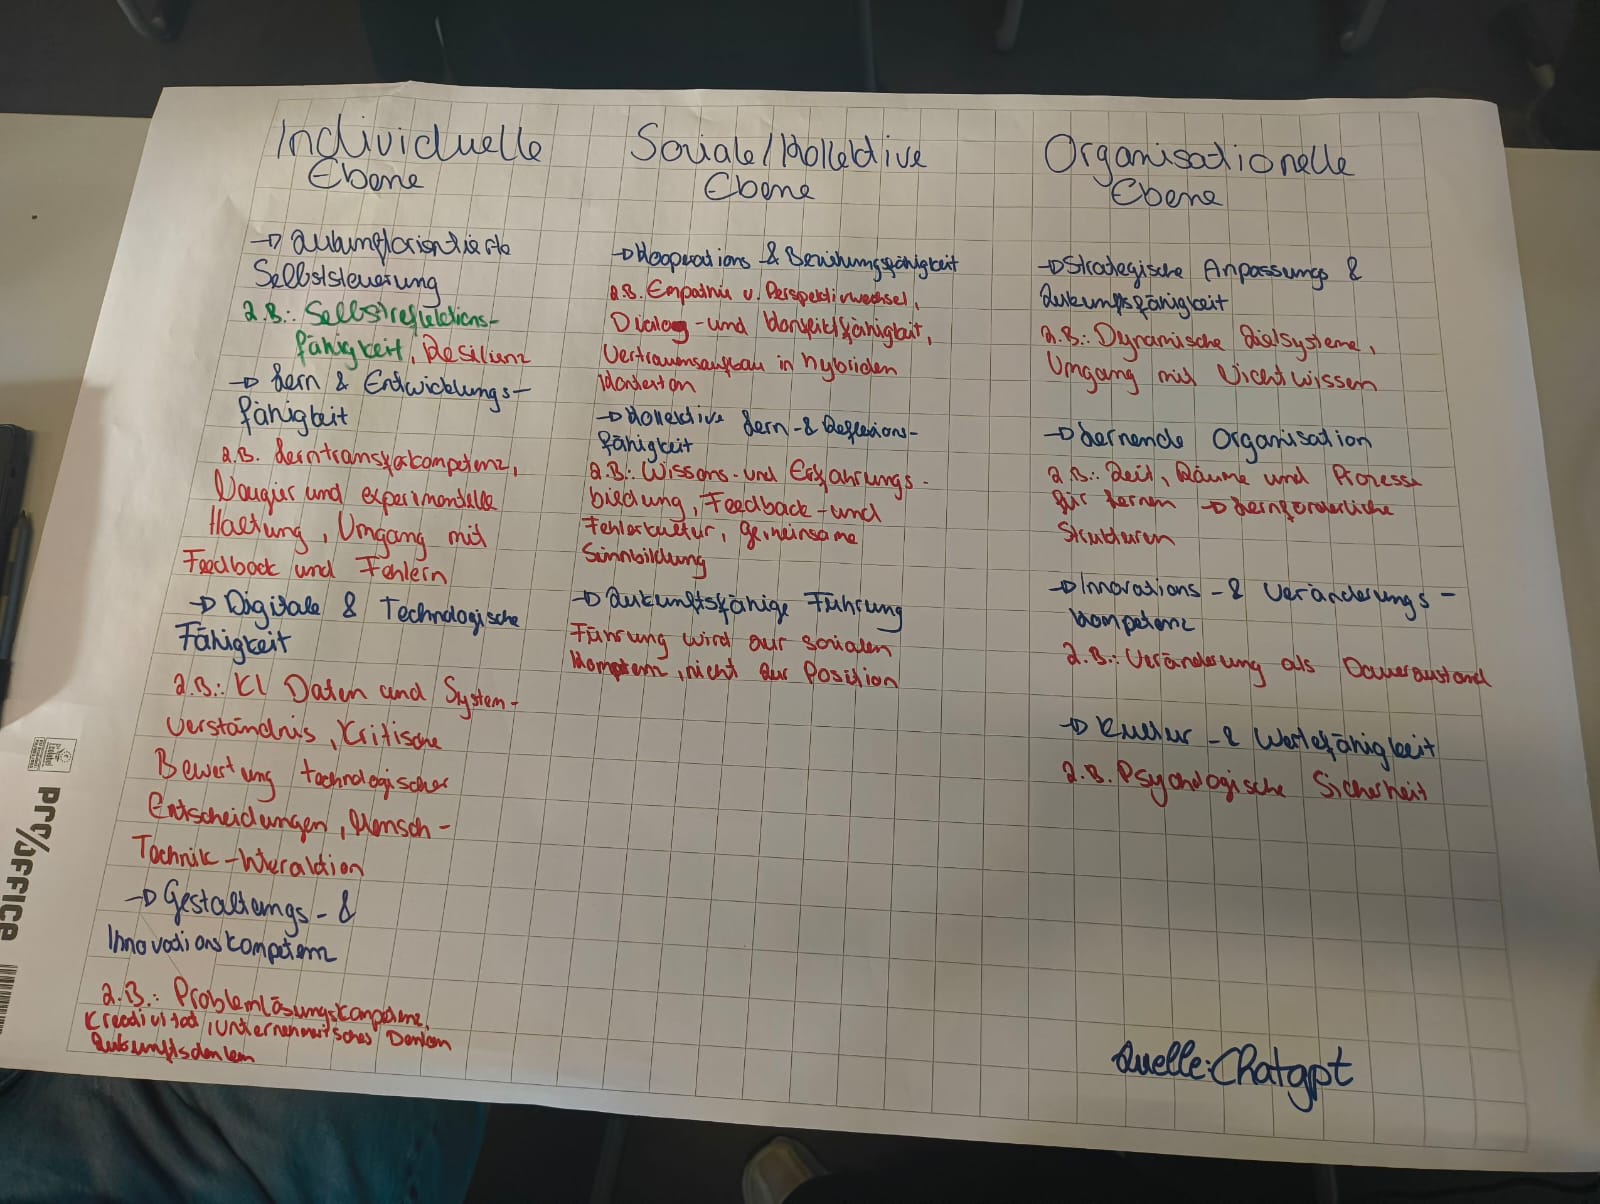 Individuelle
Ebene
→ Zukunftorientierte
Selbststeuerung
z.B.: Selbstreflektions-
fähigkeit, Resilienz
→ Lern & Entwicklungs-
fähigkeit
z.B. Lerntransferkompetenz,
Neugier und experimentelle
Haltung, Umgang mit
Feedback und Fehlern
→ Digitale & Technologische
Fähigkeit
z.B.: KI Daten und System-
verständnis, Kritische
Bewertung technologischer
Entscheidungen, Mensch-
Technik-Interaktion
→ Gestaltungs- &
Innovationskompetenz
z.B.: Problemlösungskompetenz,
Kreativität, Unternehmerisches Denken
Zukunftsdenken
Soziale/Kollektive
Ebene
→ Kooperations & Beziehungsfähigkeit
z.B. Empathie u. Perspektivwechsel,
Dialog- und Konfliktfähigkeit,
Vertrauensaufbau in hybriden
Kontexten
→ Kollektive Lern- & Reflexions-
fähigkeit
z.B.: Wissens- und Erfahrungs-
bildung, Feedback- und
Fehlerkultur, gemeinsame
Sinnbildung
→ Zukunftsfähige Führung
Führung wird zur sozialen
Kompetenz, nicht zur Position
Organisationelle
Ebene
→ Strategische Anpassungs &
Zukunftsfähigkeit
z.B.: Dynamische Zielsysteme,
Umgang mit Nichtwissen
→ Lernende Organisation
z.B.: Zeit, Räume und Prozesse
für Lernen → Lernförderliche
Strukturen
→ Innovations- & Veränderungs-
kompetenz
z.B.: Veränderung als Dauerzustand
→ Kultur- & Wertefähigkeit
z.B. Psychologische Sicherheit
Quelle: Chatgpt
pro/office